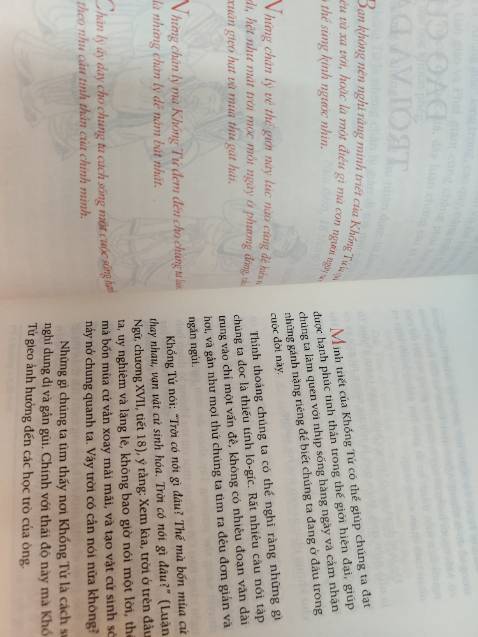 Bạn không nên nghĩ rằng minh triết của Khổng Tử là
xa vời, hoặc là một điều gì mà con người
thể sùng kính ngước nhìn.
Những chân lý về thế giới này lúc nào cũng dễ hiểu
hệt như mặt trời mọc mỗi ngày ở phương đông,
xuân gieo hạt và mùa thu gặt hái.
Những chân lý mà Khổng Tử đem đến cho chúng ta
là những chân lý dễ nắm bắt nhất.
Chân lý ấy dạy cho chúng ta cách sống một cuộc sống
theo nhu cầu tinh thần của chính mình.
Minh triết của Khổng Tử có thể giúp chúng ta đạt
được hạnh phúc tinh thần trong thế giới hiện đại, giúp
chúng ta làm quen với nhịp sống hàng ngày và cảm nhận
những gánh nặng riêng để biết chúng ta đang ở đâu trong
cuộc đời này.
Thỉnh thoảng chúng ta có thể nghĩ rằng những gì
chúng ta đọc là thiếu tính lô-gíc. Rất nhiều câu nói tập
trung vào chỉ một vấn đề, không có nhiều đoạn văn dài
hơi, và gần như mọi thứ chúng ta tìm ra đều đơn giản và
ngắn ngủi.
Khổng Tử nói: "Trời có nói gì đâu? Thế mà bốn mùa cứ
thay nhau, vạn vật cứ sinh hóa. Trời có nói gì đâu?" (Luận
Ngữ, chương XVII, tiết 18), ý rằng: Xem kìa, trời ở trên đầu
ta, uy nghiêm và lặng lẽ, không bao giờ nói một lời, thế
mà bốn mùa cứ vần xoay mãi mãi, và tạo vật cứ sinh sôi
nảy nở chung quanh ta. Vậy trời có cần nói nữa không?
Những gì chúng ta tìm thấy nơi Khổng Tử là cách
nghĩ dung dị và gần gũi. Chính với thái độ này mà Khổng
Tử gieo ảnh hưởng đến các học trò của ông.